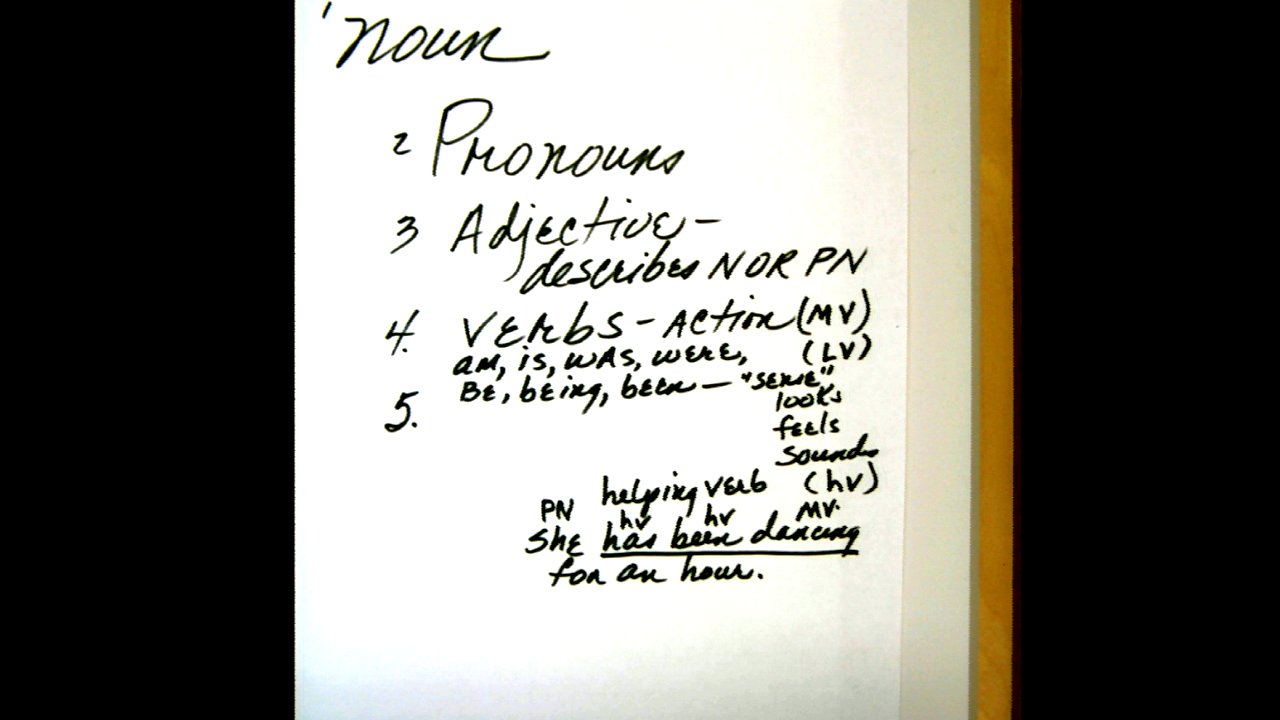 1 noun
2 Pronouns
3 Adjective -
describes N OR PN
4. VERbS - ACTION (MV)
am, is, was, were, (LV)
5. BE, being, been - "sense"
looks
feels
sounds
helping verb (hv)
PN hv hv MV.
She has been dancing
for an hour.